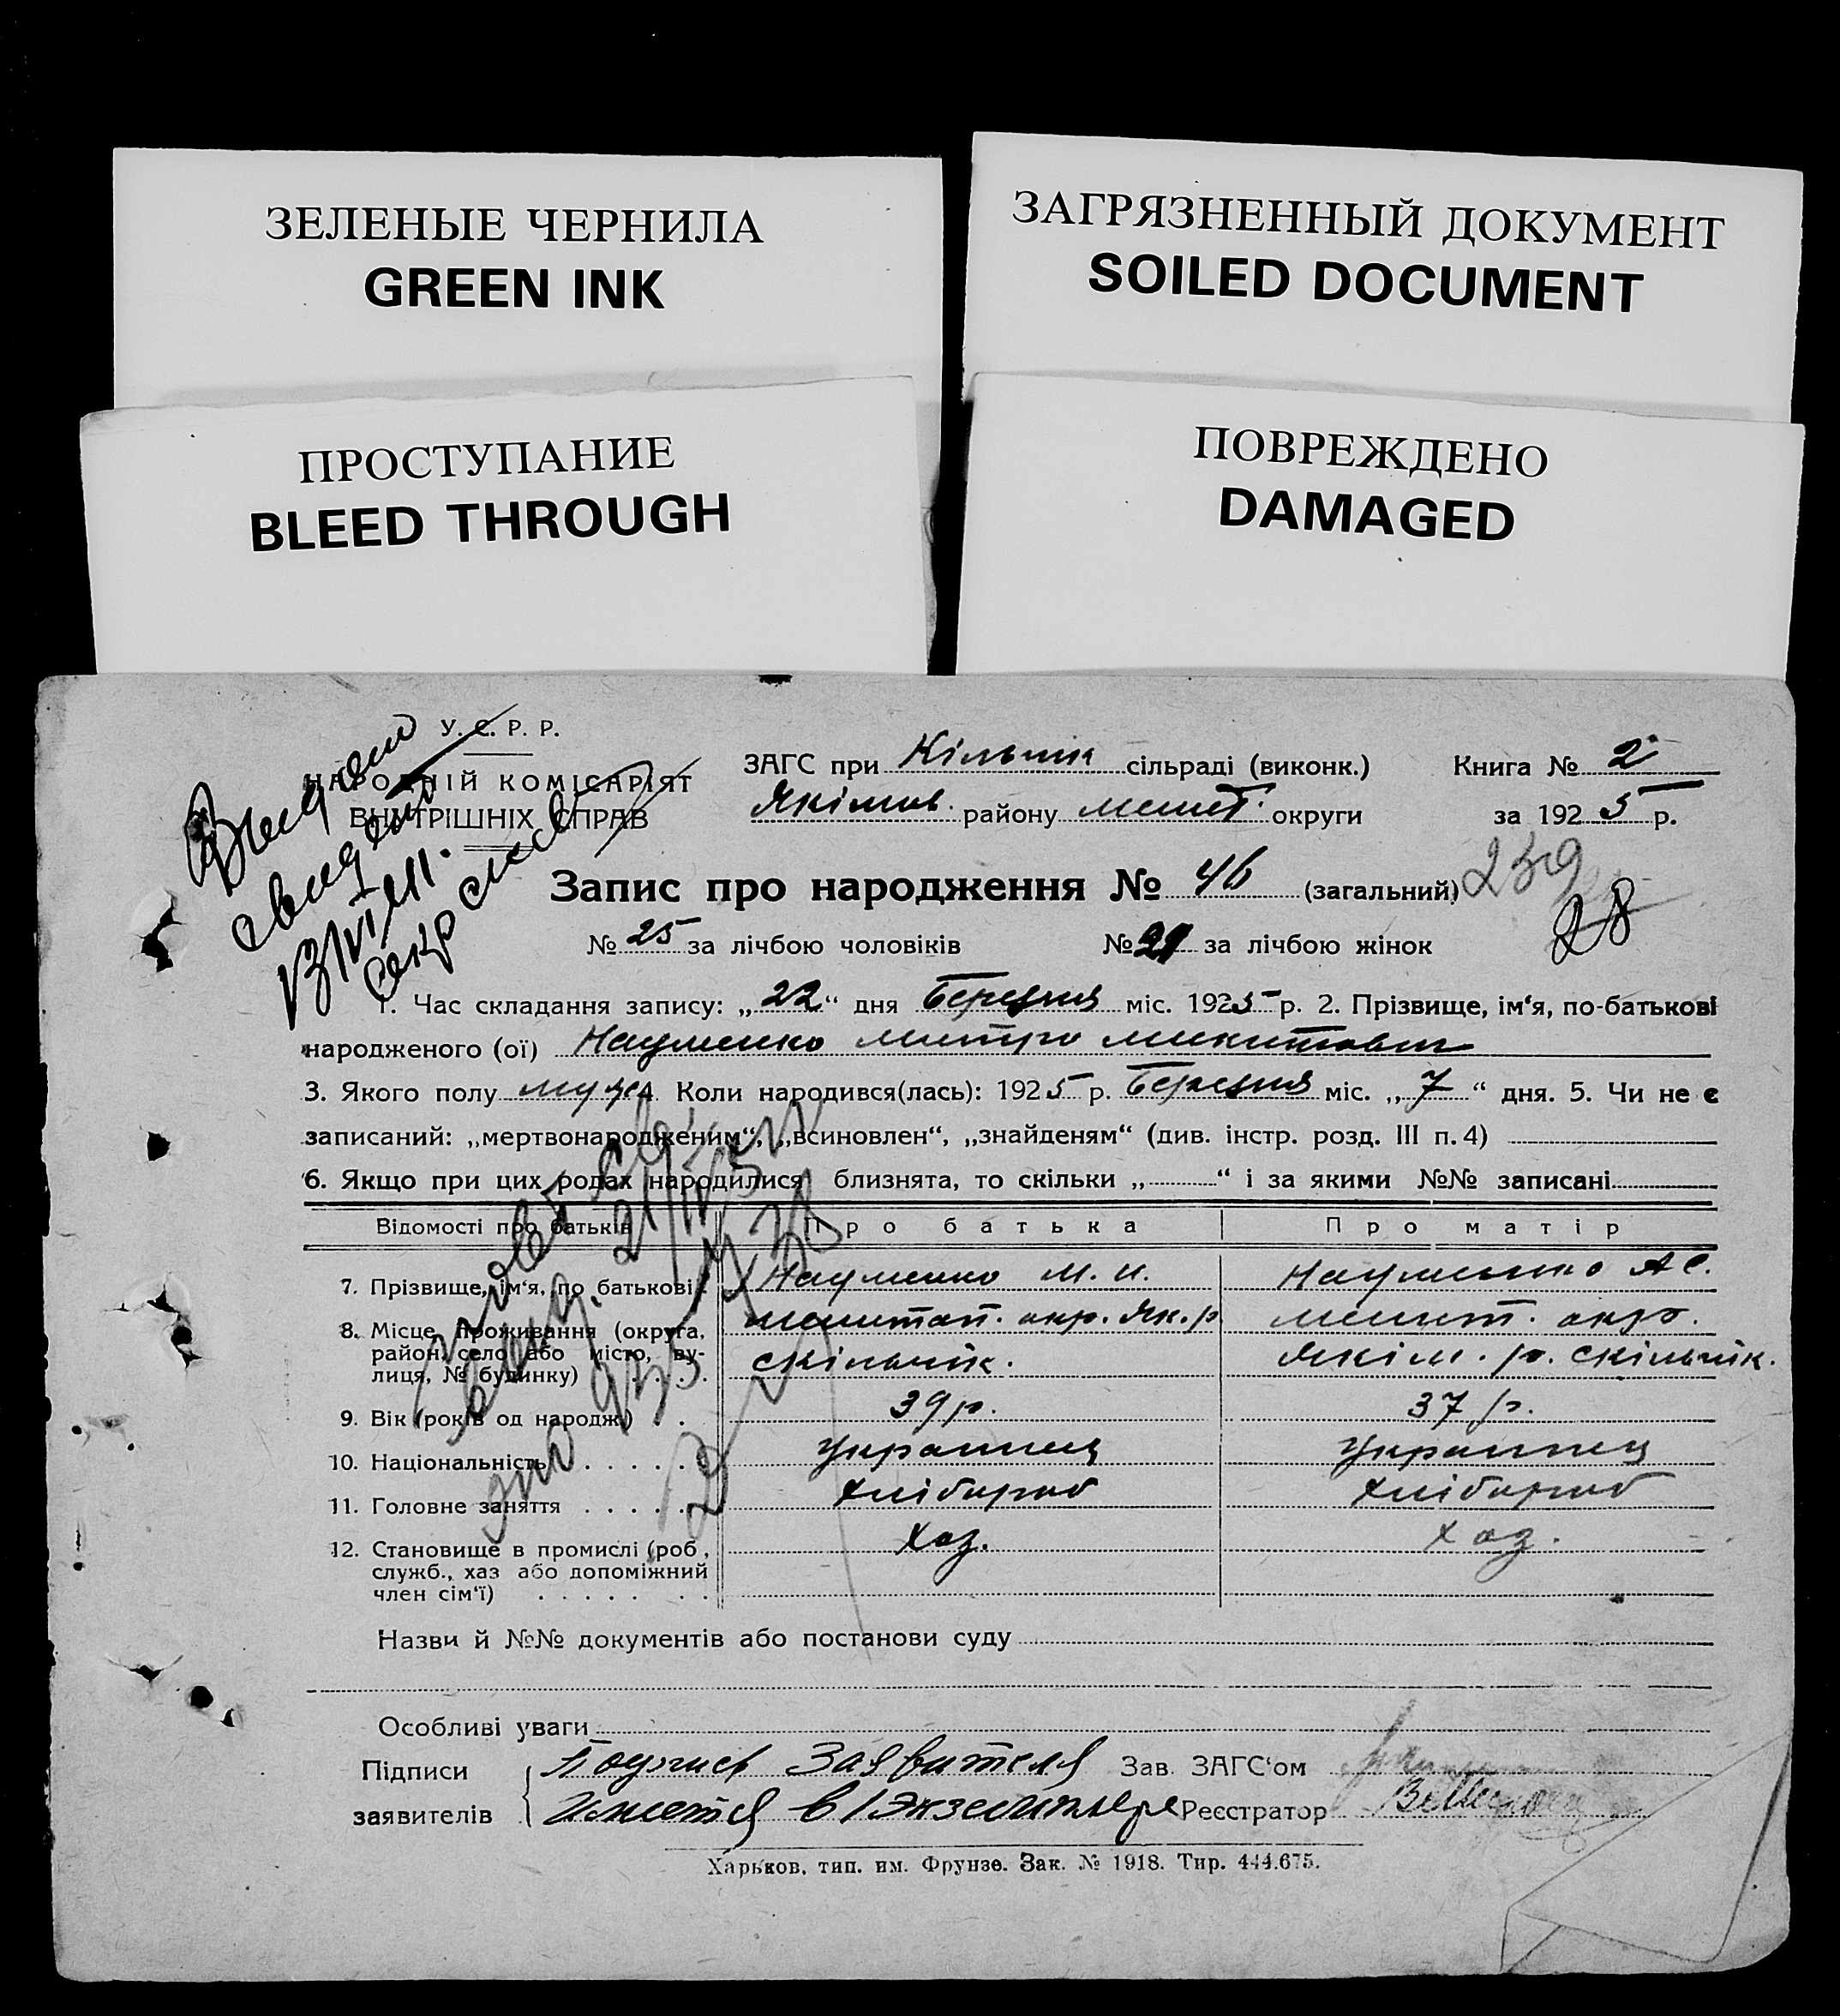 ЗЕЛЕНЫЕ ЧЕРНИЛА
GREEN INK
ЗАГРЯЗНЕННЫЙ ДОКУМЕНТ
SOILED DOCUMENT
ПРОСТУПАНИЕ
BLEED THROUGH
ПОВРЕЖДЕНО
DAMAGED
У. С. Р. Р.
НАРОДНІЙ КОМІСАРІЯТ
ВНУТРІШНІХ СПРАВ
ЗАГС при Кільчик сільраді (виконк.) Книга № 2
Якімів. району меліт. округи за 1925 р.
Запис про народження № 46 (загальний)
239
28
№ 25 за лічбою чоловіків № 21 за лічбою жінок
1. Час складання запису: „22“ дня Березня міс. 1925 р. 2. Прізвище, ім‘я, по-батькові
народженого (ої) Науменко митро микитович
3. Якого полу муж 4. Коли народився(лась): 1925 р. Березня міс. „7“ дня. 5. Чи не є
записаний: „мертвонародженим“, „всиновлен“, „знайденям“ (див. інстр. розд. III п. 4)
6. Якщо при цих родах народилися близнята, то скільки „ “ і за якими №№ записані
Відомості про батьків Про батька Про матір
7. Прізвище, ім‘я, по батькові Науменко М. И. Науменко А С.
8. Місце проживання (округа, район, село або місто, вулиця, № будинку) мелитоп. окр. Як. р. скільчик. мелит. окр. Якім. р. скільчик.
9. Вік (років од народж.) 39 р. 37 р.
10. Національність Украинец Украинец
11. Головне заняття Хлібороб Хлібороб
12. Становище в промислі (роб., служб., хаз або допоміжний член сім‘ї) Хаз. Хаз.
Назви й №№ документів або постанови суду
Особливі уваги
Підписи заявителів Подпись Заявителя Зав. ЗАГС‘ом
Имеется в 1 экземпляре Реєстратор
Харьков, тип. им. Фрунзе. Зак. № 1918. Тир. 444.675.